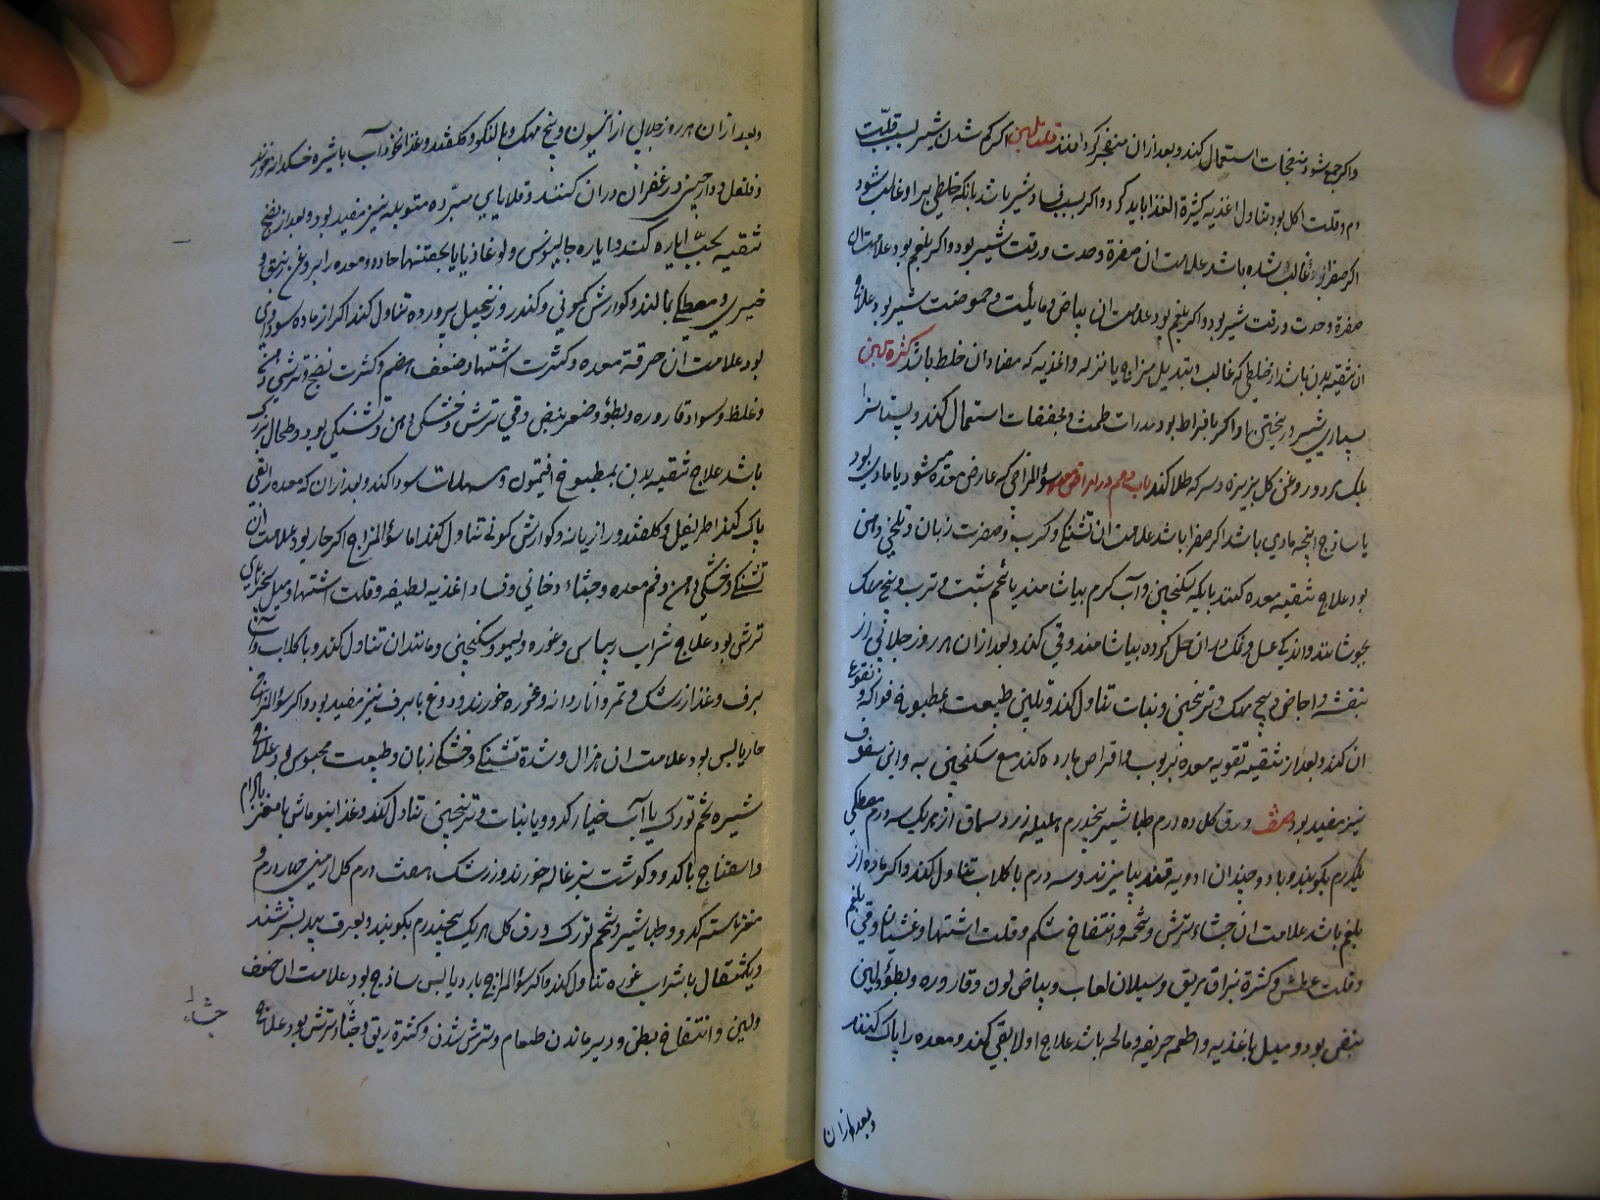 واکر جمع شود منضجات استعمال کنند و بعد ازان منفجر کردانند قلة اللبن اکر کم شدن شیر بسبب قلّت
دم و قلت اکل بود تناول اغذیه کثیرة الغذا باید کرد و اکر بسبب فساد شیر باشد بانکه خلطی برو غالب شود
اکر صفرا برو غالب شده باشد علامت ان صفرة وحدت ورقت شیر بود و اکر بلغم بود علامت ان
صفرة وحدت ورقت شیر بود و اکر بلغم بود علامت ان بیاض و مائیت و حموضت شیر بود علاج
ان تنقیه بدن باشد از خلطی که غالب و تبدیل مزاج یا نزله و اغذیه که مضاد ان خلط باشد کثرة لبن
بسیاری شیر در پختن یا واکر بافراط بود مدرات طمث و مجففات استعمال کنند و پستانرا
بلک مرد و روغن کل بزیره و سرکه طلا کنند باب دهم در امراض معده سؤ المزاجی که عارض معده شود یا مادی بود
یا ساذج انچه مادی باشد اکر صفرا باشد علامت ان تشنکی و کرب و صفرت زبان و تلخی دهن
بود علاج تنقیه معده کنند بانکه سکنجبین و آب کرم بیاشامند یا تخم شبت و ترب و بیخ مهک
بجوشانند و اندکی عسل و نمک در ان حل کرده بیاشامند وقی کنند و بعد ازان هر روز جلابی از
بنفشه و اجاص و بیخ مهک و ترنجبین و نبات تناول کنند و تلیین طبیعت بمطبوخ فواکه و نقوع
ان کنند و بعد از تنقیه تقویه معده بربوب و اقراص بارده کنند مع سکنجبین به و این سفوف
نیز مفید بود صفت ورق کل ده درم طباشیر پنجدرم هلیله زرد و سماق از هر یک سه درم مصطکی
یکدرم بکوبند و باد و چندان ادویه قند بیامیزند و سه درم با کلاب تناول کنند و اکر ماده از
بلغم باشد علامت ان جشاء ترش و تخمه و انتفاخ شکم و قلت اشتها و غشیان و قی بلغم
و قلت عطش و کثرة بزاق و ریق و سیلان لعاب و بیاض لون و قاروره و بطؤ و لین
نبض بود و میل باغذیه و اطعمه حریفه و مالحه باشد علاج اولا بقی کنند و معده را پاک کنند
و بعد ازان
و بعد ازان هر روز جلابی از انیسون و بیخ مهک و بالنکو و کلقند و غذا نخوداب با شیره خسکدانه خورند
و فلفل و دارچینی و زعفران دران کنند و قلایای مبزّره متوبله نیز مفید بود و بعد از نضج
تنقیه بحبّ ایاره کنند و ایاره جالینوس و لوغاذیا یا بحقنهاء حاده و معده را بروغن زنبق و
خیری و مصطکی بمالند و کوارش کمونی و کندر و زنجبیل پرورده تناول کنند اکر از ماده سوداوی
بود علامت ان حرقة معده و کثرت اشتها و ضعف هضم و کثرت نفخ و ترشی دهن
و غلظ و سواد قاروره و بطؤ و صغر نبض و قی ترش و خشکی دهن و تشنکی بود و طحال بزرک
باشد علاج تنقیه بدن بمطبوخ افتیمون و مسهلات سودا کنند و بعد ازان که معده را بقی
پاک کنند اطریفل و کلقند و رازیانه و کوارش کمونی تناول کنند اما سؤ المزاج اکر حار بود علامت ان
تشنکی و خشکی دهن و فم معده و جشاء دخانی و فساد اغذیه لطیفه و قلت اشتها و میل بچیزهای
ترش بود علاج شراب ریباس و غوره و لیمو و سکنجبین و مانند ان تناول کنند و با کلاب و آب
برف و غذا زرشک و تمر و اناردانه و غوره خورند و دوغ با برف نیز مفید بود و اکر سؤ المزاج
حار یابس بود علامت ان هزال و شدة تشنکی و خشکی زبان و طبیعت محبوس بود علاج
شیره تخم تورک یا آب خیار و کدو و یا نبات و ترنجبین تناول کنند و غذا بنو ماش با مغز بادام
و اسفناج با کدو و کوشت بزغاله خورند و زرشک هفت درم کل ارمنی چهار درم و
مغز هسته کدو و طباشیر و تخم تورک و ورق کل هر یک پنجدرم بکوبند و بعرق بید بسرشند
و یکمثقال با شراب غوره تناول کنند و اکر سؤ المزاج بارد یابس ساذج بود علامت ان ضعف
ولین و انتفاخ بطن و دیر ماندن طعام و ترش شدن و کثرة ریق و جشاء ترش بود علاج
جشاء